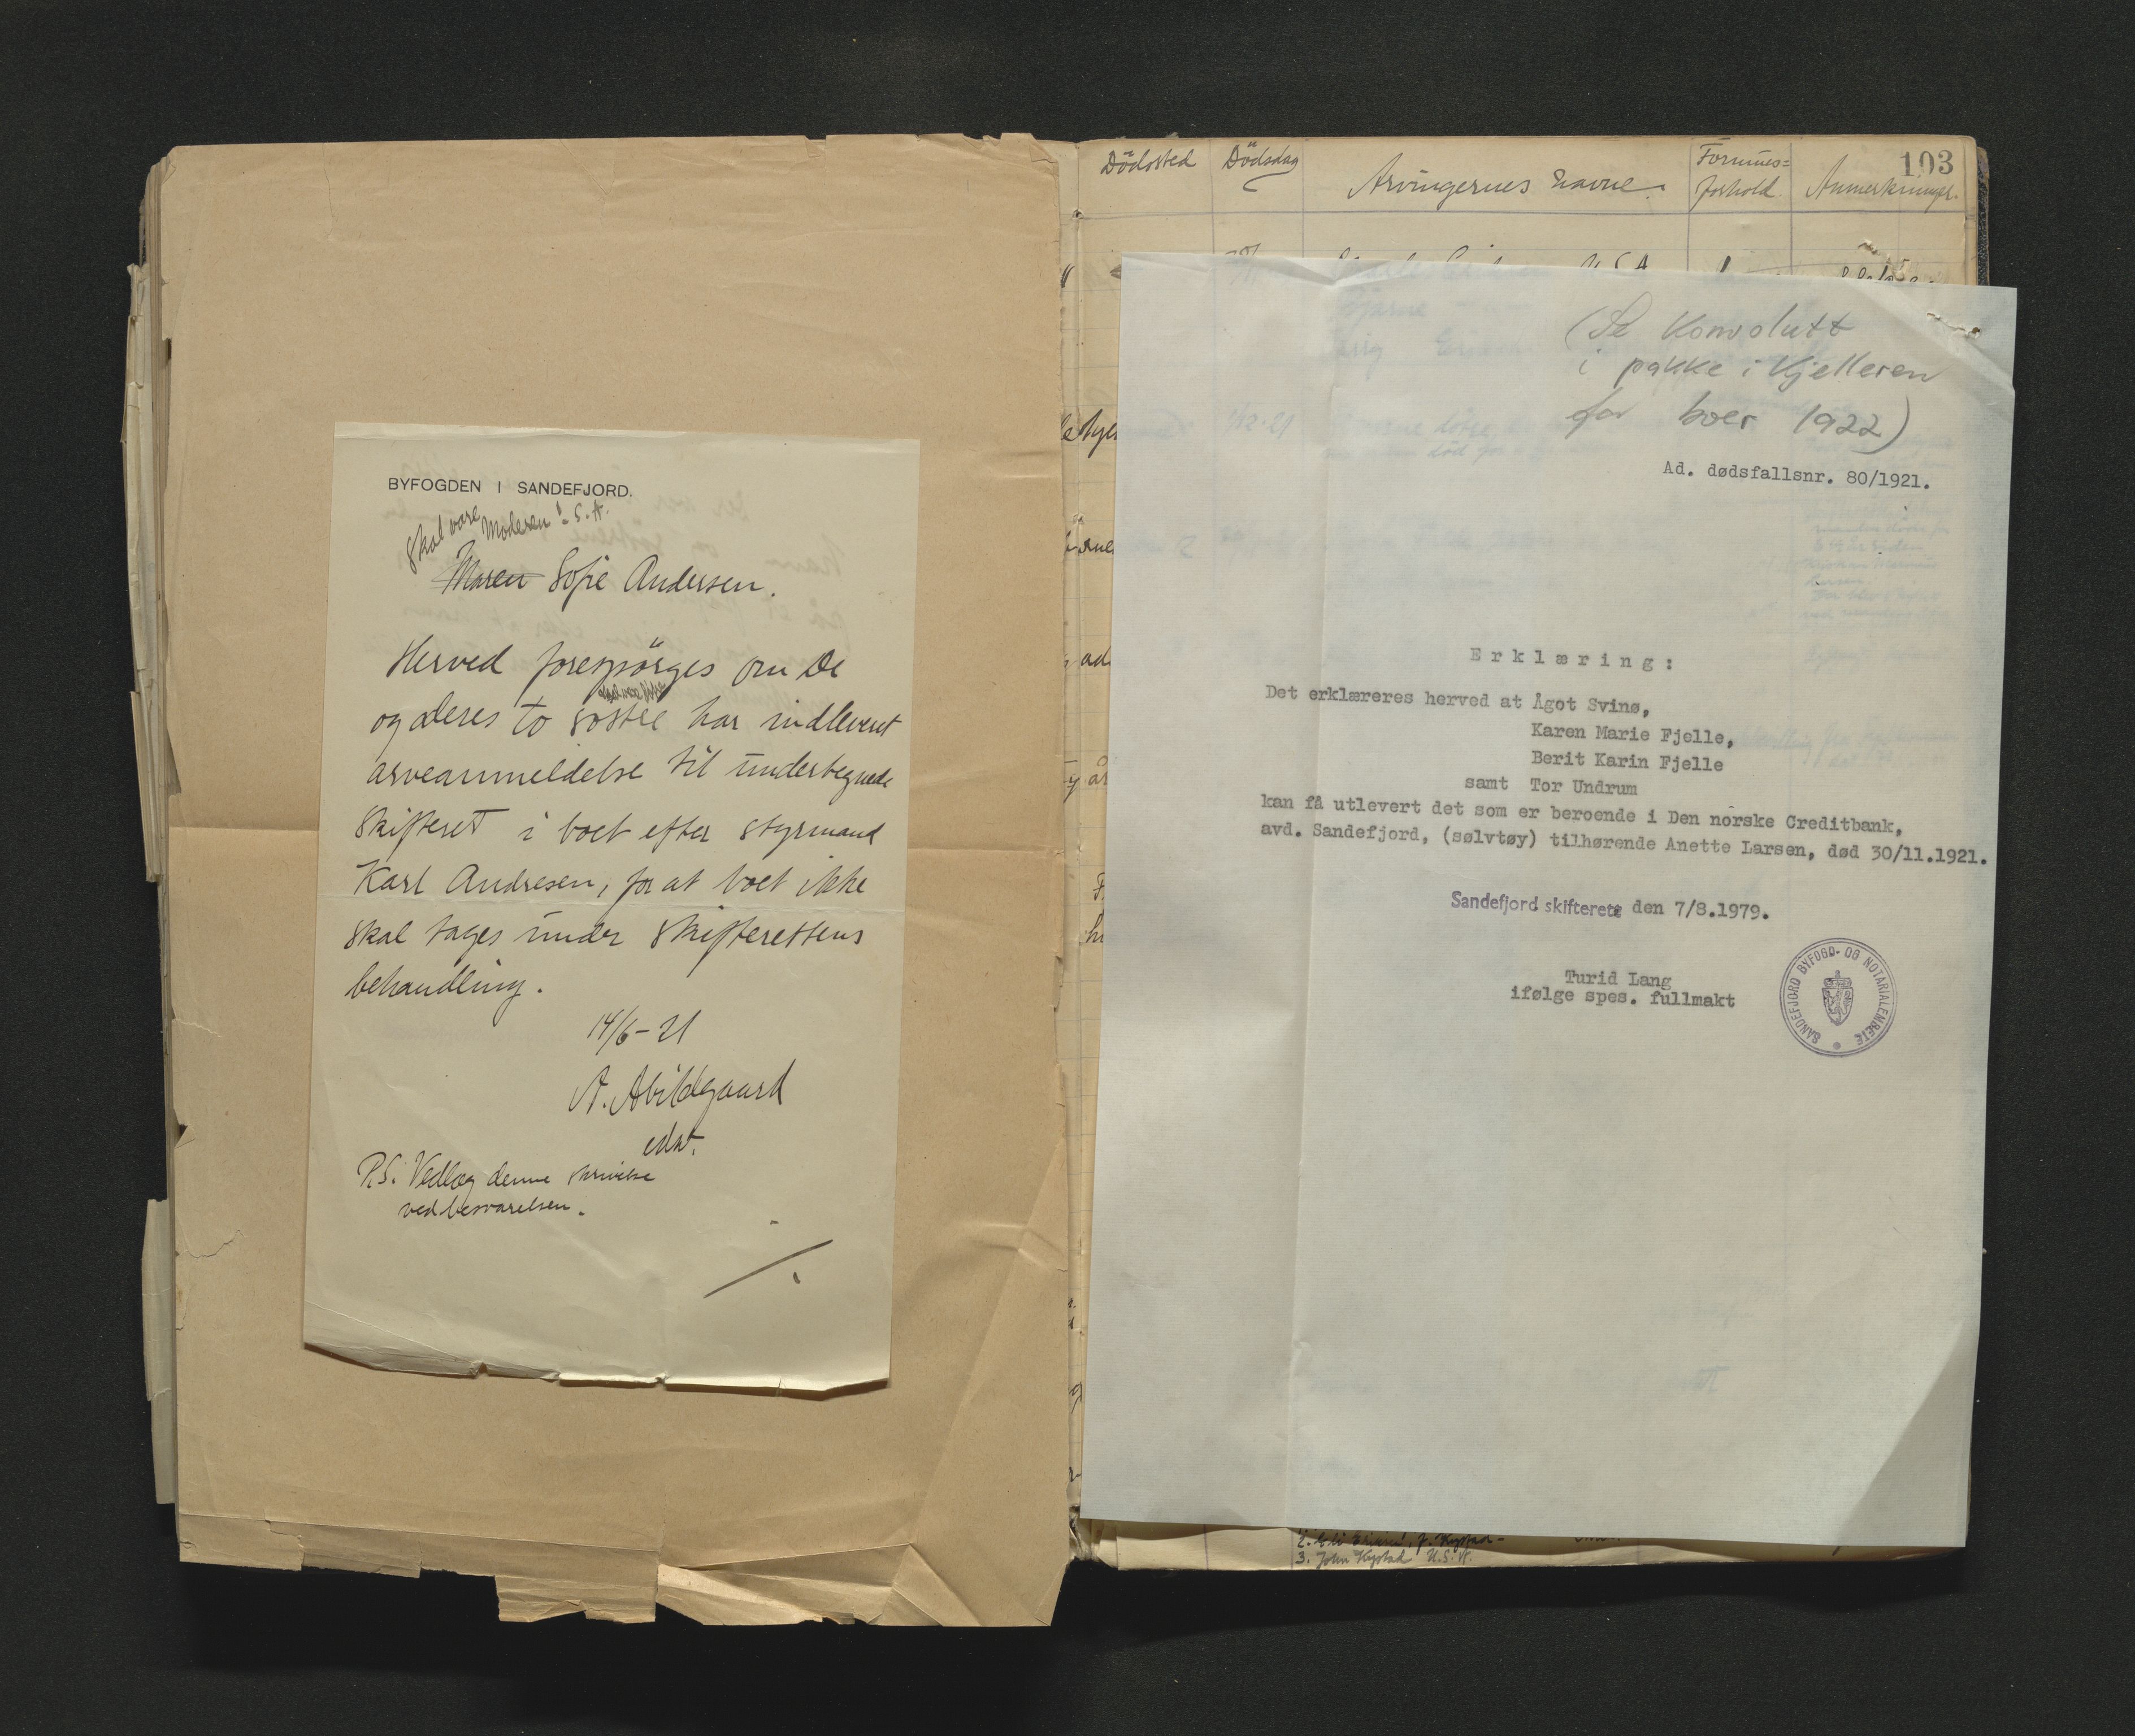 BYFOGDEN I SANDEFJORD.
skal være
Moderen! S.A.
Maren Sofie Andersen.
Herved forespørges om De
og deres to søstre har indlevert
arveanmeldelse til undertegnede
skifteret i boet efter styrmand
Karl Andresen, for at boet ikke
skal tages under skifterettens
behandling.
14/6-21
A. Abildgaard
edsv.
P.S. Vedlæg denne skrivelse
ved besvarelsen.
Dödssted
Dödsdag
Arvingernes navne.
Formues=
forhold.
Anmerkninger.
103
U.S.A.
(Se Konvolutt
i pakke i Kjelleren
for boer 1922)
Ad. dødsfallsnr. 80/1921.
Erklæring:
Det erklæreres herved at Ågot Svinø,
Karen Marie Fjelle,
Berit Karin Fjelle
samt Tor Undrum
kan få utlevert det som er beroende i Den norske Creditbank,
avd. Sandefjord, (sølvtøy) tilhørende Anette Larsen, død 30/11.1921.
Sandefjord skifterett den 7/8.1979.
Turid Lang
ifølge spes. fullmakt
SANDEFJORD BYFOGD- OG NOTARIALEMBETE
3. John Kystad U.S.A.